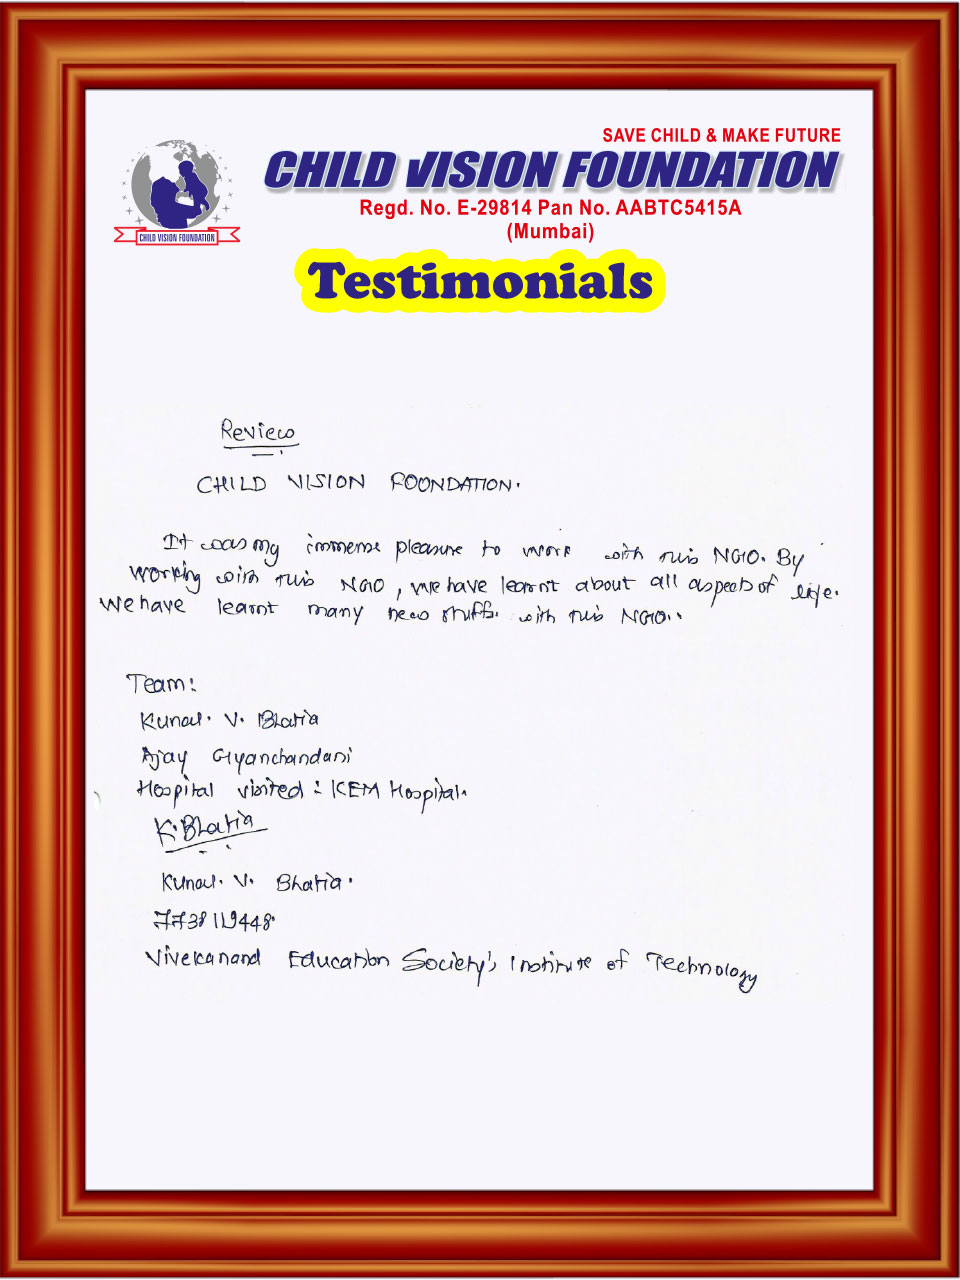 SAVE CHILD & MAKE FUTURE
CHILD VISION FOUNDATION
Regd. No. E-29814 Pan No. AABTC5415A
(Mumbai)
CHILD VISION FOUNDATION
Testimonials
Review
CHILD VISION FOONDATION.
It was my immense pleasure to work with this NGO. By
working with this NGO, we have learnt about all aspects of life.
we have learnt many new stuffs with this NGO..
Team:
Kunal. V. Bhatia
Ajay Gyanchandani
Hospital visited : KEM Hospital.
K.Bhatia
Kunal. V. Bhatia.
7738119448.
Vivekanand Education Society's Institute of Technology